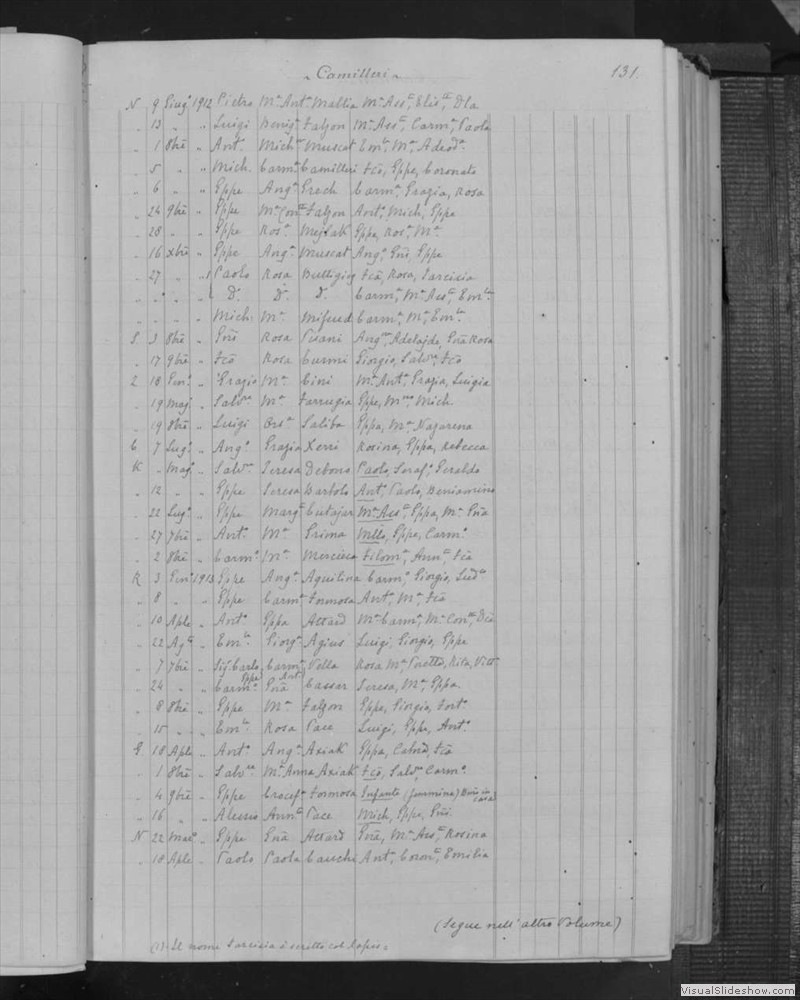 Camilleri 131.
N 9 Giug.o 1912 Pietro M.a Ant.a Mallia M.a Ass.ta, Elis.tta, Dla
" 13 " " Luigi Benig.a Falzon M.a Ass.ta, Carm.a, Paola
" 1 8bre " Ant.o Mich.a Muscat Em.la, M.a Adeod.a
" 5 " " Mich. Carm.a Camilleri Fco, Gppe, Coronato
" 6 " " Gppe Ang.a Grech Carm.a, Grazia, Rosa
" 24 9bre " Gppe M.a Con.tta Falzon Ant.o, Mich, Gppe
" 28 " " Gppe Ros.a Mejlak Gppa, Ros.a, M.a
" 16 Xbre " Gppe Ang.a Muscat Ang.a, Gio, Gppe
" 27 " " Paolo Rosa Buttigieg Fca, Rosa, Tarcisia
" " " " D. D. D. Carm.a, M.a Ass.ta, Em.la
" " " " Mich. M.a Mifsud Carm.a, M.a, Em.la
3 8bre " Gio Rosa Pisani Ang.ca, Adelajde, Gia Rosa
" 17 9bre " Fco Rosa Curmi Giorgio, Salv.re, Fco
18 Gen.o " Grazio M.a Cini M.a Ant.a, Grazia, Luigia
" 19 Mag. " Salv.re M.a Farrugia Gppe, Mich.
" 19 8bre " Luigi Ors.a Saliba Gppa, M.a Nazarena
7 Lug.o " Ang.o Grazia Xerri Rosina, Gppa, Rebecca
K " Mag. " Salv.re Teresa Debono Paolo, Seraf.o, Geraldo
" 12 " " Gppe Teresa Bartolo Ant.o, Paolo, Beniamino
" 22 Lug.o " Gppe Marg.ta Cutajar M.a Ass.ta, Gppa, M.a Gia
" 27 7bre " Ant.o M.a Grima Gppe, Carm.o
" 2 8bre " Carm.o M.a Mercieca Filom.a, Ann.a, Fca
K 3 Gen.o 1913 Gppe Ang.a Aquilina Carm.o, Giorgio, Lud.co
" 8 " " Gppe Carm.a Formosa Ant.a, M.a, Fca
" 10 Aple " Ant.o Gppa Attard M.a Carm.a, M.a Con.tta
" 22 Ag.to " Em.le Giorg.a Agius Luigi, Giorgio, Gppe
" 7 7bre " Sig Carlo, Carm.a Vella Rosa M.a Rita
Gppe Ant.
" 24 " " Carm.o Gia Cassar Teresa, M.a, Gppa
" 8 8bre " Gppe M.a Falzon Gppe, Giorgio, Fort.o
" 15 " " Em.le Rosa Pace Luigi, Gppe, Ant.o
G 18 Aple " Ant.o Ang.a Axiak Gppa, Fca
" 1 8bre " Salv.re M.a Anna Axiak Fco, Salv.re, Carm.o
" 4 9bre " Gppe Crocef.a Formosa Infante (femmina) in casa
" 16 " " Alessio Ann.ta Pace Mich, Gppe, Gio
N 22 Mar.o " Gppe Gia Attard Gia, M.a Ass.ta, Rosina
" 18 Aple " Paolo Paola Cauchi Ant.a, Coron.ta, Emilia
(Segue nell' altro Volume)
(1) Il nome Tarcisia è scritto col lapis.
VisualSlideshow.com